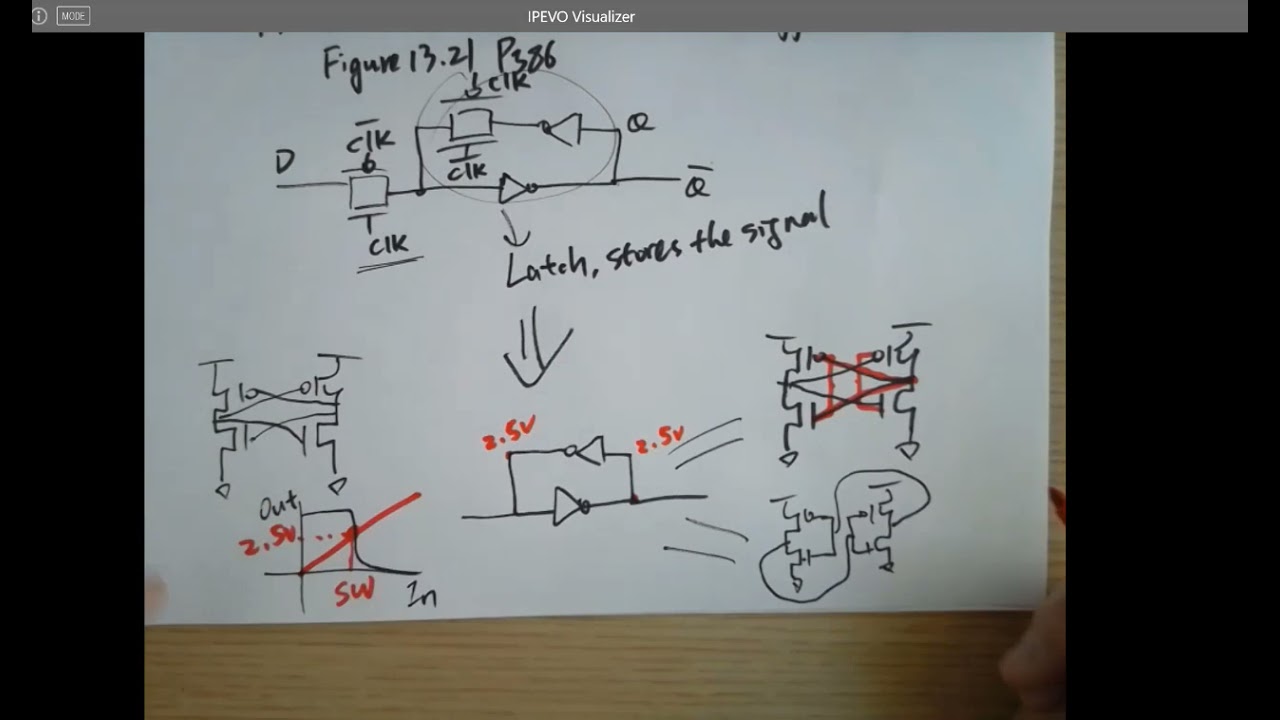 MODE
IPEVO Visualizer
Figure 13.21 P386
clk
Q
D
clk
clk
Q
clk
Latch, stores the signal
2.5V
2.5V
Out
2.5V
SW
In